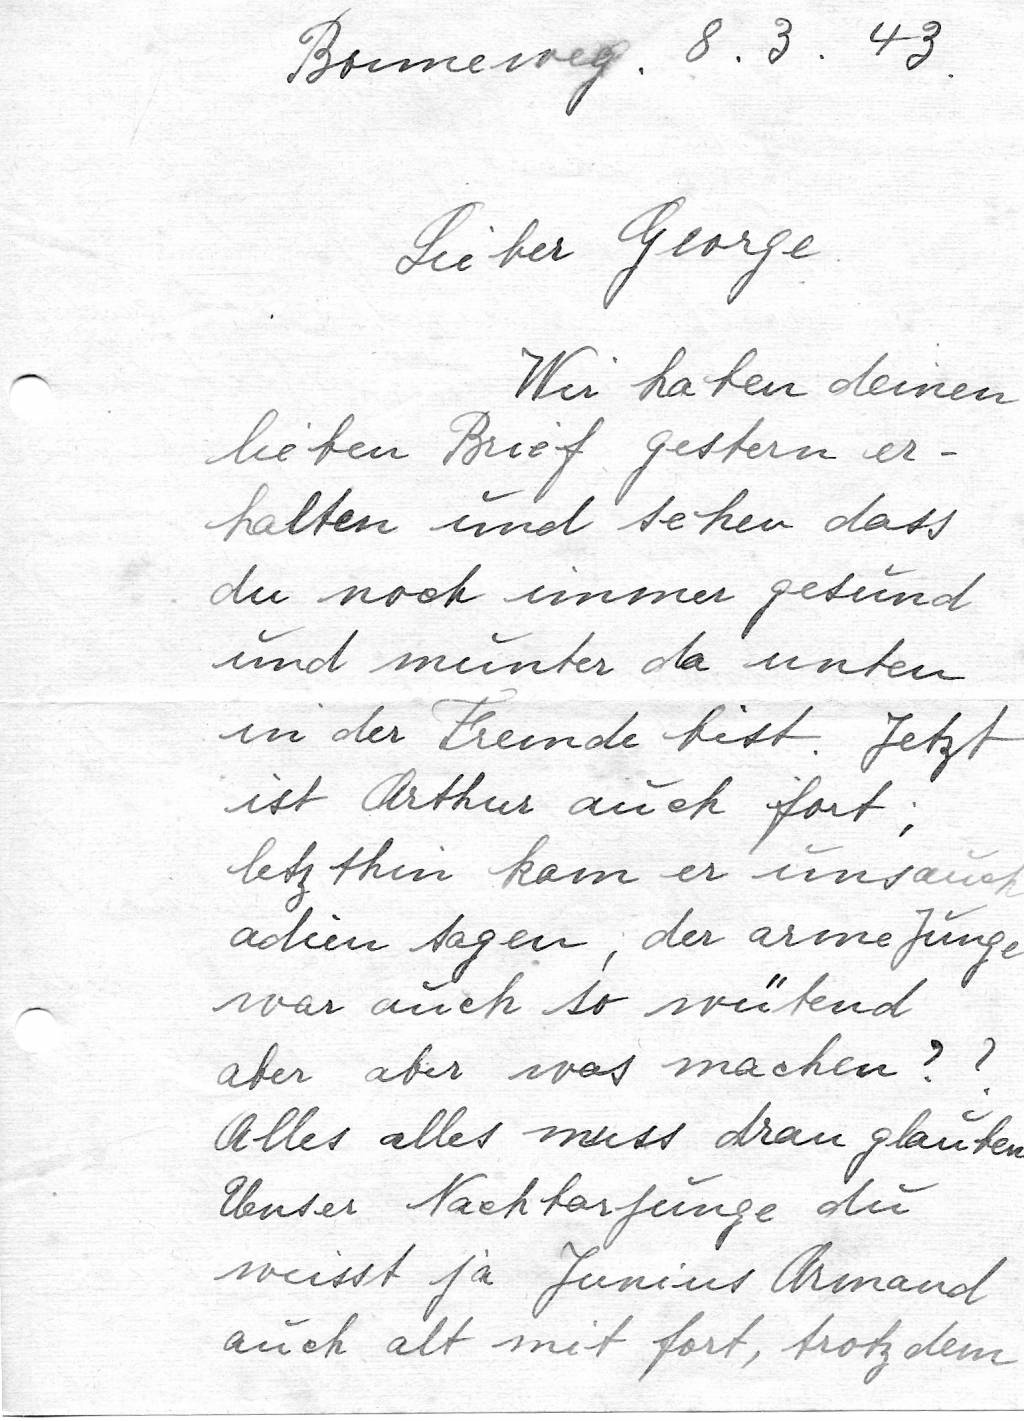 Bonneweg. 8. 3. 43.
Lieber George
Wir haben deinen
lieben Brief gestern er-
halten und sehen dass
du noch immer gesund
und munter da unten
in der Fremde bist. Jetzt
ist Arthur auch fort,
letzthin kam er uns auch
adieu sagen, der arme Junge
war auch so wütend
aber aber was machen??
Alles alles muss dran glauben
Unser Nachbarjunge du
weisst ja Junius Armand
auch alt mit fort, trotzdem